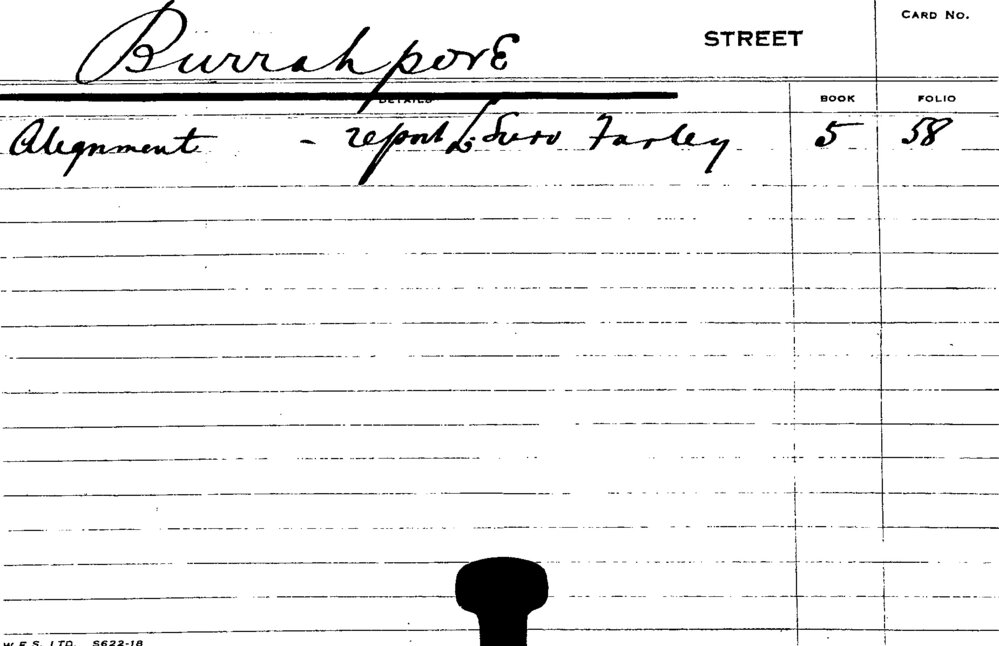 Burrahpore STREET CARD NO.
DETAILS BOOK FOLIO
Alignment - report by Surv Farley 5 58
W.F.S. LTD. S622-18